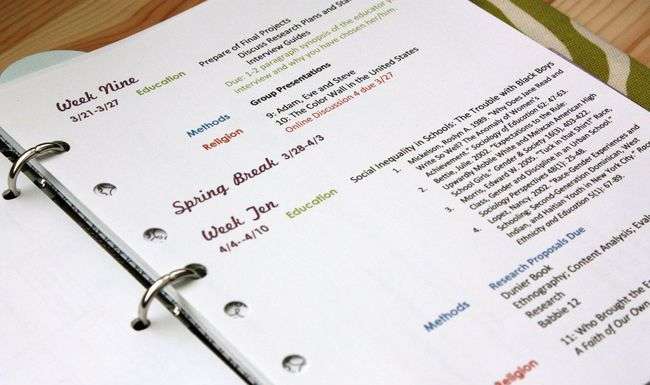 Prepare of Final Projects
Discuss Research Plans and
Interview Guides
Due: 1-2 paragraph synopsis of the educator
interview and why you have chosen her/him
Week Nine
3/21-3/27
Education
Group Presentations
Methods
9: Adam, Eve and Steve
10: The Color Wall in the United States
Religion
Online Discussion 4 due 3/27
Spring Break 3/28-4/3
Week Ten
4/4--4/10
Education
Social Inequality in Schools: The Trouble with Black Boys
1. Mickelson, Roslyn A. 1989. "Why Does Jane Read and
Write So Well? The Anomaly of Women's
Achievement." Sociology of Education 62: 47-63.
2. Bettie, Julie. 2002. "Exceptions to the Rule:
Upwardly Mobile White and Mexican American High
School Girls." Gender & Society 16(3): 403-422.
3. Morris, Edward W. 2005. "Tuck in that Shirt!" Race,
Class, Gender and Discipline in an Urban School."
Sociology Perspectives 48(1): 25-48.
4. Lopez, Nancy. 2002. "Race-Gender Experiences and
Schooling: Second-Generation Dominican, West
Indian, and Haitian Youth in New York City."
Ethnicity and Education 5(1): 67-89.
Methods
Research Proposals Due
Dunier Book
Ethnography; Content Analysis;
Research
Babbie 12
Religion
11: Who Brought the
A Faith of Our Own